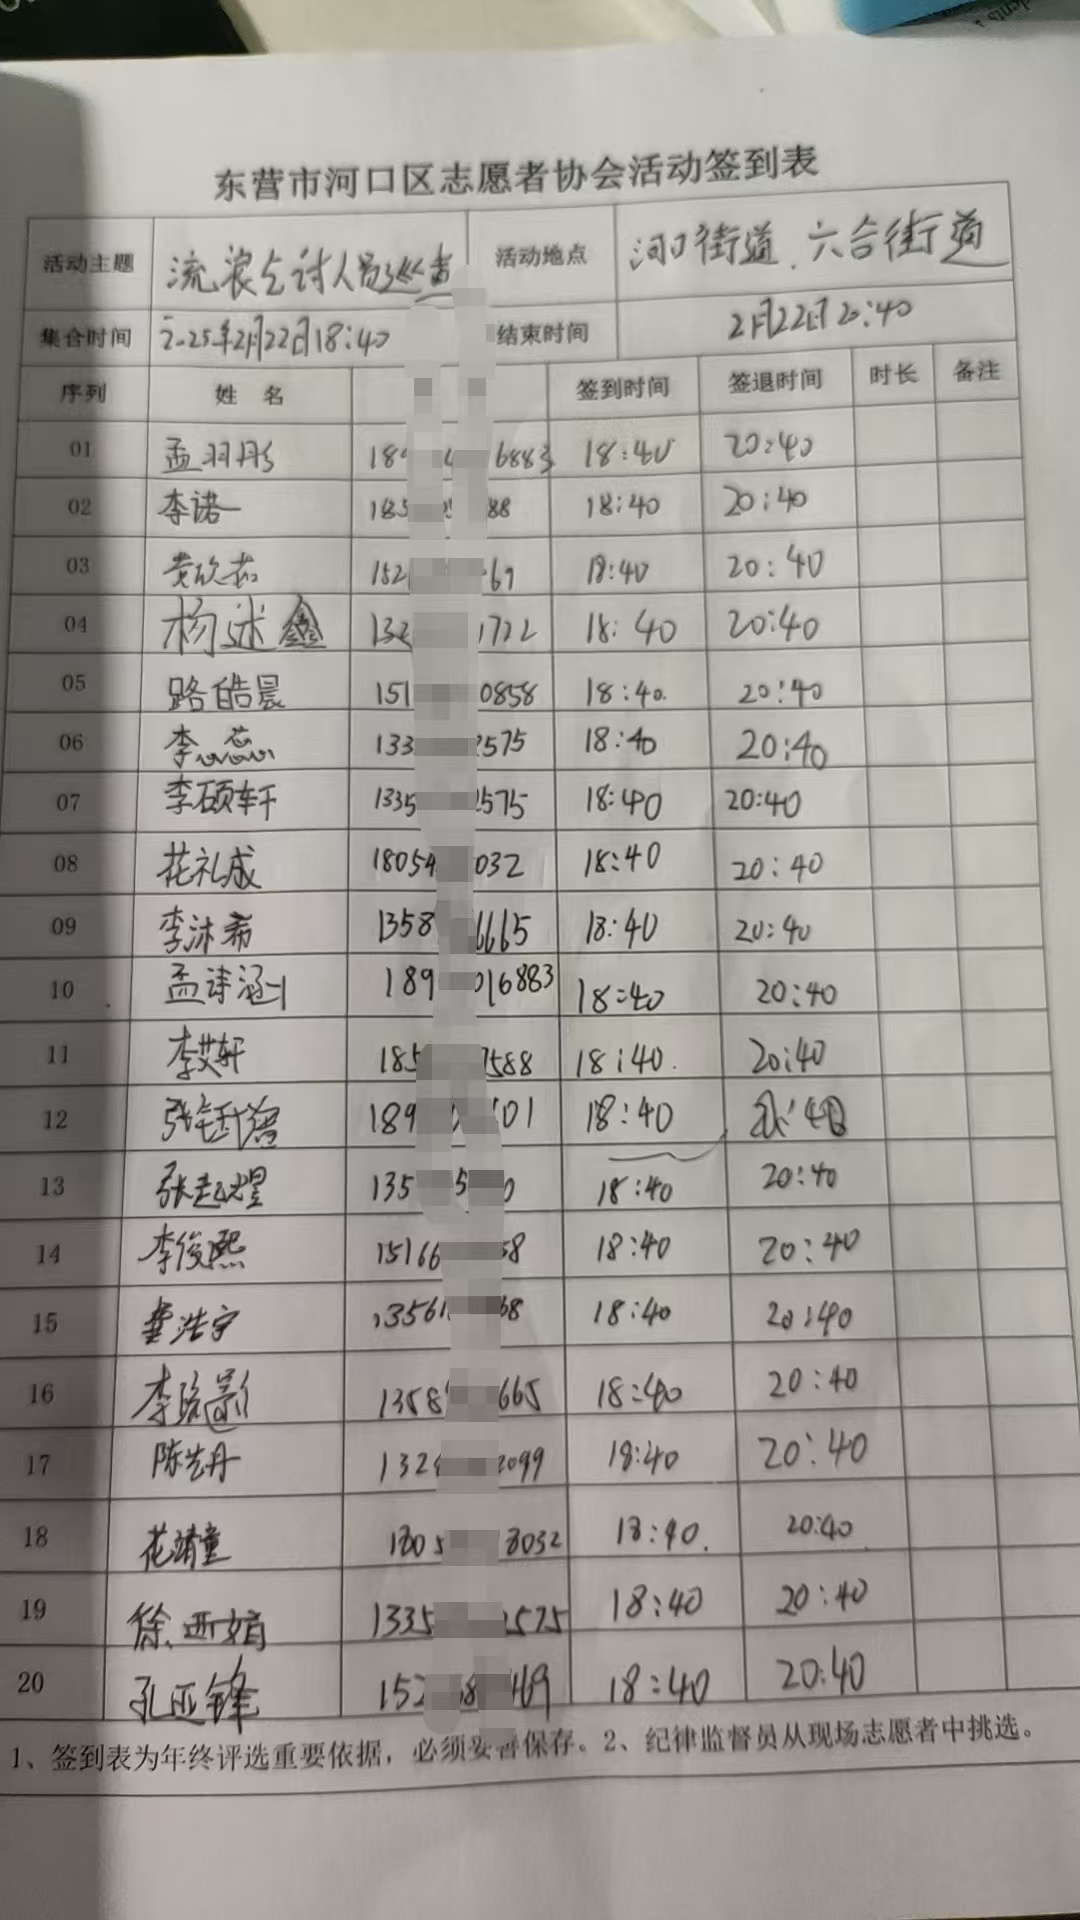 东营市河口区志愿者协会活动签到表
活动主题 流浪乞讨人员巡查 活动地点 河口街道、六合街道
集合时间 2025年2月22日18:40 结束时间 2月22日20:40
序列 姓名 签到时间 签退时间 时长 备注
01 孟羽彤 189 6883 18:40 20:40
02 李诺一 185 88 18:40 20:40
03 152 69 18:40 20:40
04 杨述鑫 132 1722 18:40 20:40
05 路皓晨 151 0858 18:40. 20:40
06 李蕊 133 2575 18:40 20:40
07 李硕轩 1335 2575 18:40 20:40
08 花礼成 18054 032 18:40 20:40
09 李沐希 1358 6665 18:40 20:40
10 孟诗涵 189 016883 18:40 20:40
11 李艾轩 185 7588 18:40. 20:40
12 189 01 18:40
13 135 5 0 18:40 20:40
14 李俊熙 15166 58 18:40 20:40
15 浩宇 13561 68 18:40 20:40
16 1358 665 18:40 20:40
17 陈艺丹 132 2099 18:40 20:40
18 花靖童 1805 3032 18:40. 20:40
19 徐西娟 1335 2575 18:40 20:40
20 孔亚锋 152 8 469 18:40 20:40
1、签到表为年终评选重要依据，必须妥善保存。2、纪律监督员从现场志愿者中挑选。